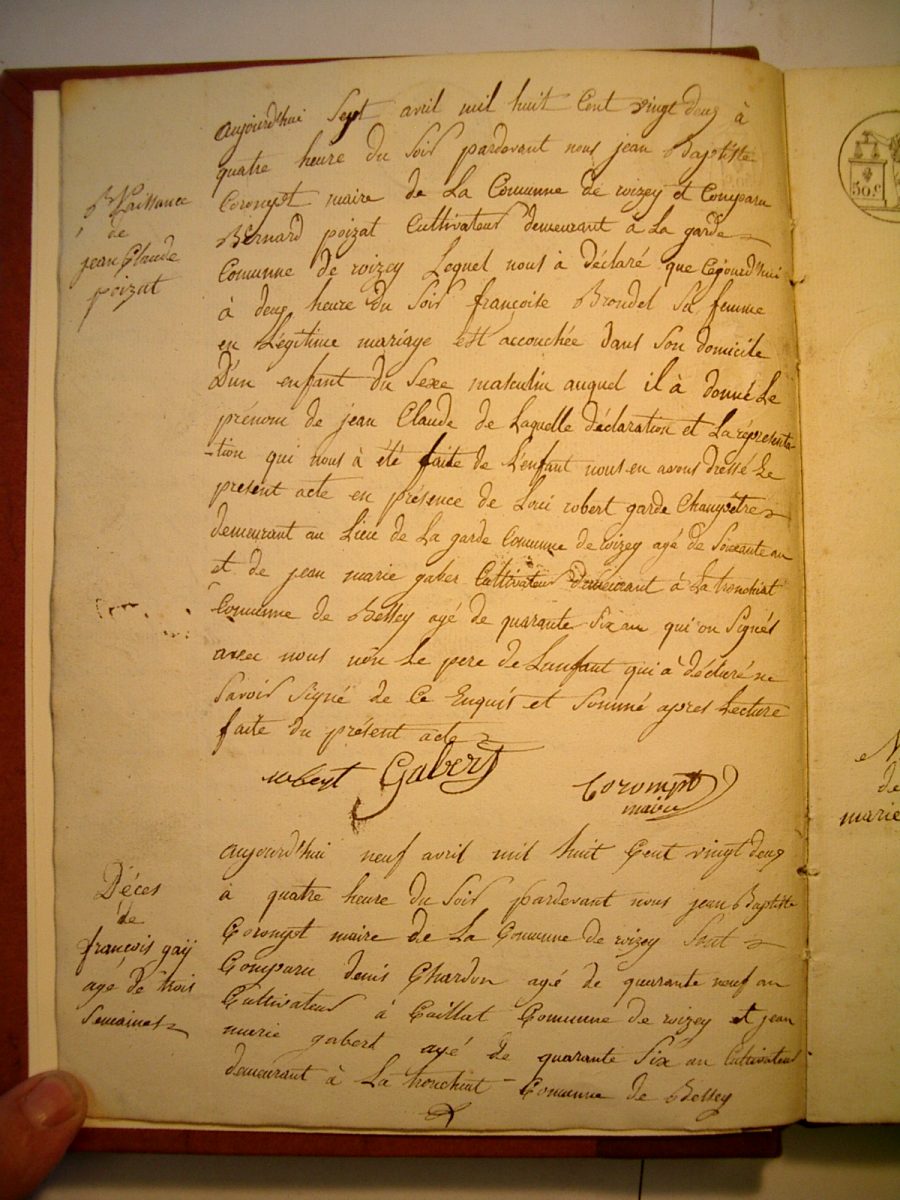 Naissance
de
jean Claude
poizat
aujourd'hui Sept avril mil huit Cent vingt deux à
quatre heure du Soir pardevant nous jean Baptiste
Corompt maire de La Comunne de roizey et Comparu
Bernard poizat Cultivateur demeurant à La garde
Comunne de roizey Lequel nous à déclaré que Cejourd'hui
à deux heure du Soir françoise Brondel Sa femme
en Légitime mariage est accouchée dans Son domicile
D'un enfant du Sexe masculin auquel il à donné Le
prénom de jean Claude de Laquelle déclaration et La réprésenta-
-tion qui nous à été faite de L'enfant nous en avons dressé Le
present acte en présence de Loui robert garde Champêtre
demeurant au Lieu de La garde Comunne de roizey agé de Soixante an
et de jean marie gaber Cultivateur demeurant à La tronchiat
Comunne de Bessey agé de quarante Six an qui on Signés
avec nous non Le pere de Lanfant qui à déclaré ne
Savoir Signé de Ce Enquis et Sommé apres Lecture
faite du présent acte
robert Gabert Corompt
maire
Déces
de
françois gay
agé de trois
Semaines
aujourd'hui neuf avril mil huit Cent vingt deux
à quatre heure du Soir pardevant nous jean Baptiste
Corompt maire de La Comunne de roizey Sont
Comparu denis Chardon agé de quarante neuf an
Cultivateur à Caillat Comunne de roizey et jean
marie gabert agé de quarante Six an Cultivateur
demeurant à La tronchiat Comunne de Bessey
50 c
de
marie